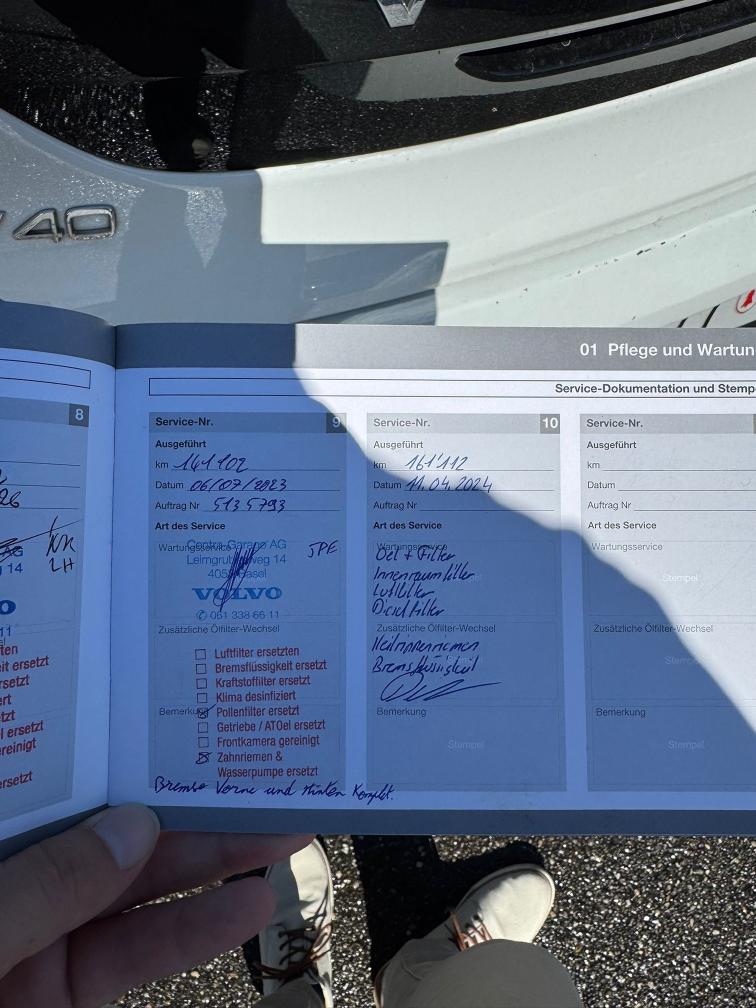 40
01 Pflege und Wartun
Service-Dokumentation und Stempe
8
26
AG
g 14
KR
LH
O
11
ten
eit ersetzt
rsetzt
ert
tzt
el ersetzt
ereinigt
ersetzt
Service-Nr. 9
Ausgeführt
km 141102
Datum 06/07/2023
Auftrag Nr 5135793
Art des Service
Wartungsservice
Centra-Garage AG
Leimgrubenweg 14
Basel
JPE
VOLVO
✆ 061 338 66 11
Zusätzliche Ölfilter-Wechsel
☐ Luftfilter ersetzten
☐ Bremsflüssigkeit ersetzt
☐ Kraftstoffilter ersetzt
☐ Klima desinfiziert
Bemerkung
☒ Pollenfilter ersetzt
☐ Getriebe / ATOel ersetzt
☐ Frontkamera gereinigt
☒ Zahnriemen &
Wasserpumpe ersetzt
Bremse Vorne und Hinten Komplet.
Service-Nr. 10
Ausgeführt
km 161'112
Datum 11.04.2024
Auftrag Nr
Art des Service
Wartungsservice
Oel + Filter
Innenraumfilter
Luftfilter
Dieselfilter
Zusätzliche Ölfilter-Wechsel
Keilrippenriemen
Bremsflüssigkeit
Bemerkung
Stempel
Service-Nr.
Ausgeführt
km
Datum
Auftrag Nr
Art des Service
Wartungsservice
Stempel
Zusätzliche Ölfilter-Wechsel
Stempel
Bemerkung
Stempel